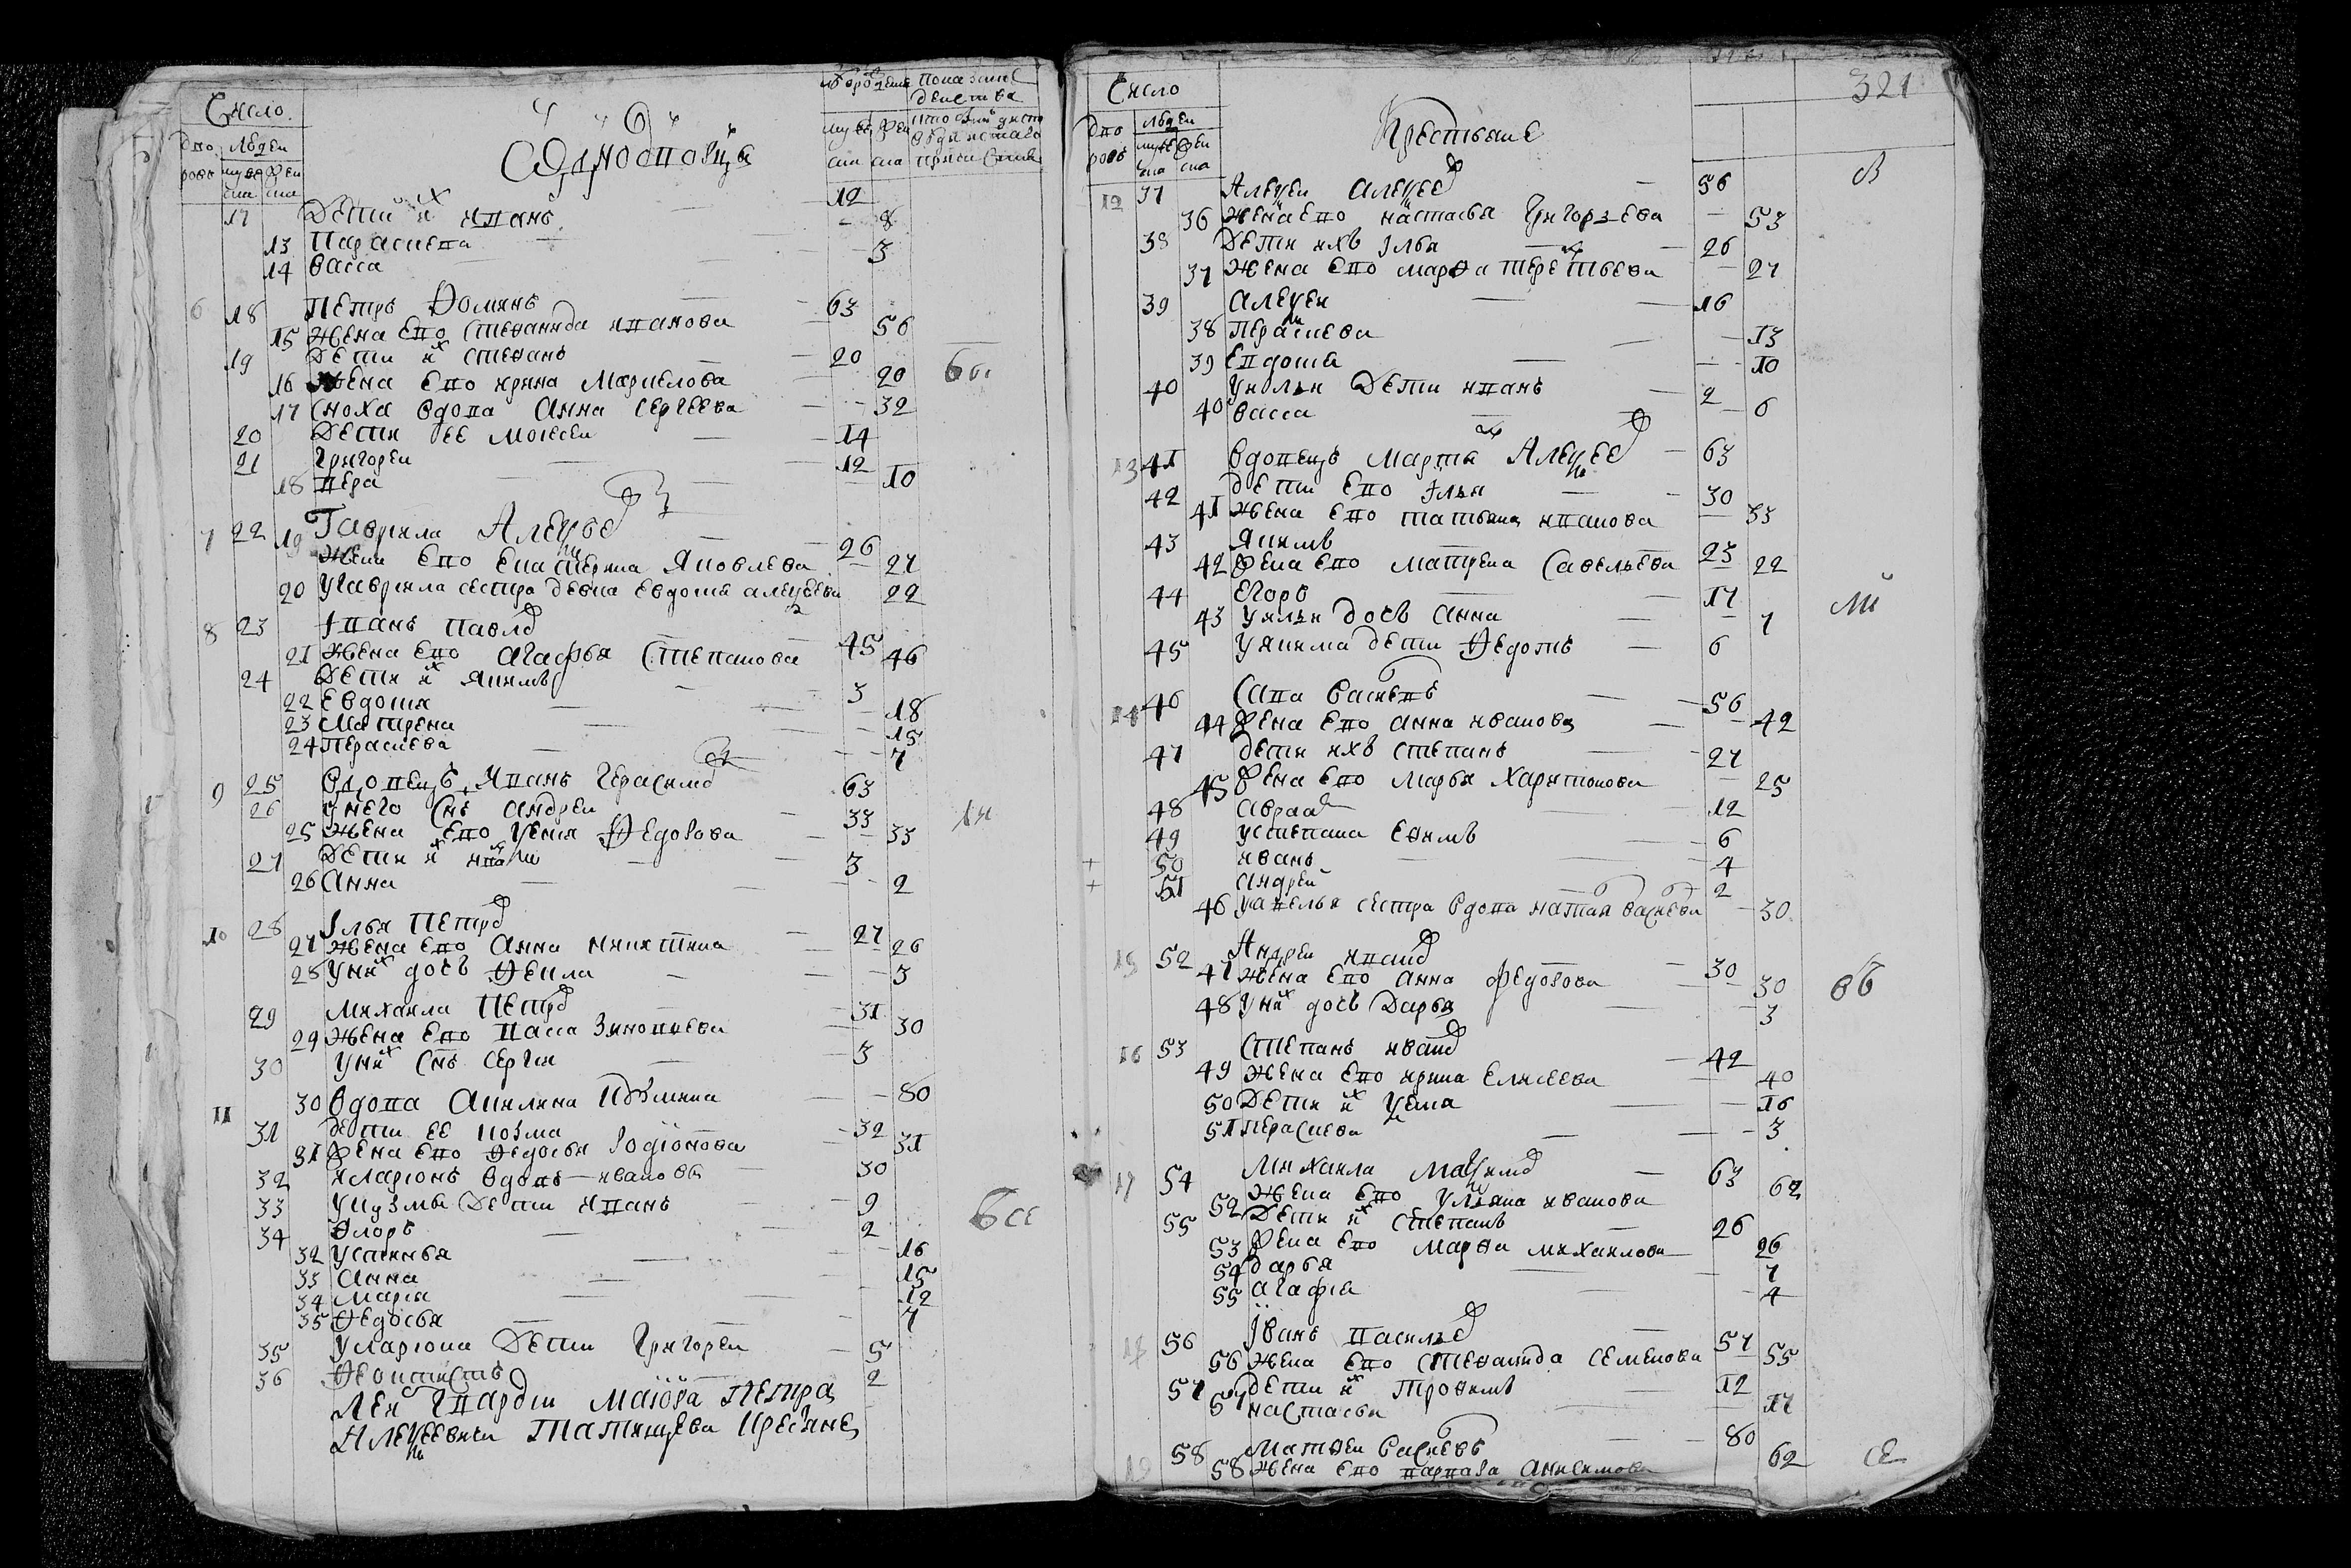 Число
Дво ровъ
Людей
муже ска
жен ска
Однодворцы
От рождения
муже ска
жен ска
17 Дети их Иванъ 12
13 Параскева 8
14 Васса 3
6 18 Петръ Фоминъ 63
15 жена ево Стефанида Иванова 56
19 Дети их Стефанъ 20
16 жена ево Ирина Маркелова 20
17 Сноха вдова Анна Сергеева 32
20 Дети ее Моисеи 14
21 Григореи 12
18 Вера 10
7 22 Гаврила Алексеев 26
19 жена ево Екатерина Яковлева 27
20 У Гаврила сестра девка Евдокия Алексеева 22
8 23 Иванъ Павлов 45
21 жена ево Агафья Степанова 46
24 Дети их Якимъ 3
22 Евдокия 18
23 Матрена 15
24 Пераскева 7
9 25 Вдовецъ Иванъ Герасимов 63
26 у него снъ Андреи 33
25 жена ево Ксения Федорова 33
27 Дети их Иванъ 3
26 Анна 2
10 28 Илья Петров 27
27 жена ево Анна Никитина 26
28 у них дочь Фекла 3
29 Михаила Петров 31
29 жена ево Васса Зиновиева 30
30 у них снъ Сергеи 3
11 30 вдова Акилина 80
31 дети ее Козма 32
31 жена ево Федосья Родионова 31
32 Иларионъ вдовъ Ивановъ 30
33 у Кузмы Дети Иванъ 9
34 Флоръ 2
32 Устинья 16
33 Анна 15
34 Мария 12
35 Федосья 7
35 у Лариона Дети Григореи 5
36 Феоктистъ 2
Леи Гвардии Маиора Петра
Алексеевича Татищева Кресяне
321
Число
дво ровъ
людеи
муже ска
жен ска
Крестьяне
12 37 Алексеи Алексеев 56
36 жена ево Настасья Григорьева 53
38 Дети ихъ Илья 26
37 жена ево Марфа Терентьева 27
39 Алексеи 16
38 Пераскева 13
39 Евдокия 10
40 у Ильи Дети Иванъ 2
40 Васса 6
13 41 вдовецъ Мартин Алексеев 63
42 дети ево Илья 30
41 жена ево Татьяна Иванова 33
43 Якимъ 23
42 жена ево Матрена Савельева 22
44 Егоръ 17
43 у Ильи дочь Анна 7
45 у Якима дети Федотъ 6
14 46 Сава Василевъ 56
44 жена ево Анна Иванова 42
47 дети ихъ Степанъ 27
45 жена ево Марья Харитонова 25
48 Авраам 12
49 у Степана Ефимъ 6
50 Иванъ 4
51 Андрей 2
46 у Савелья сестра вдова Наталья Васильева 30
15 52 Андреи Иванов 30
47 жена ево Анна Федорова 30
48 у них дочь Дарья 3
16 53 Степанъ Иванов 42
49 жена ево Ирина Елисеева 40
50 Дети их Ксения 16
51 Пераскева 3
17 54 Михаила Максимов 63
52 жена ево Ульяна Иванова 62
55 Дети их Степанъ 26
53 жена ево Марфа Михаилова 26
54 Дарья 7
55 Агафия 4
18 56 Иванъ Васильев 57
56 жена ево Стефанида Семенова 55
57 Дети их Трофимъ 12
57 Настасья 17
19 58 Матвеи Василевъ 80
58 жена ево Варвара Анисимова 62